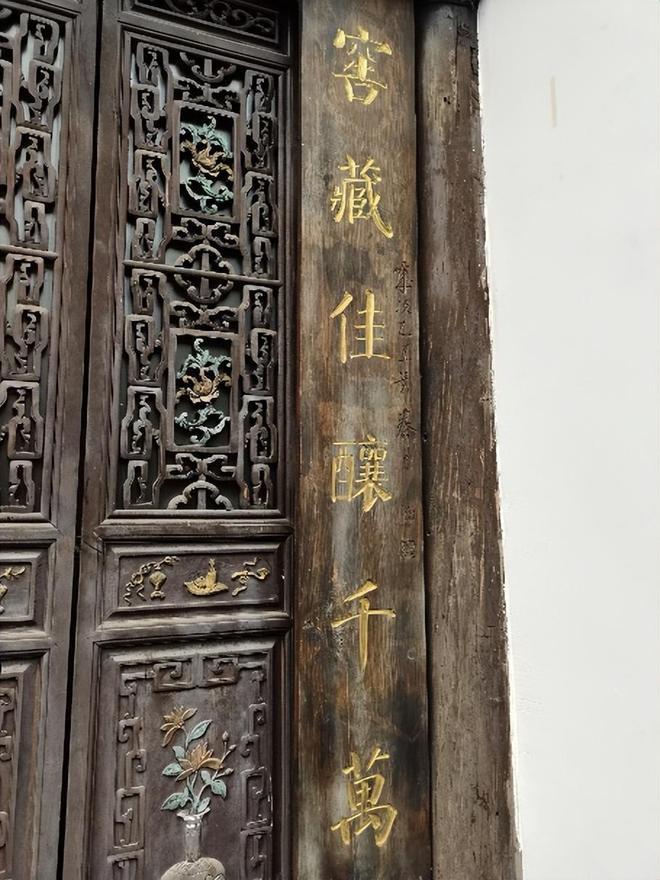 窖藏佳釀千萬